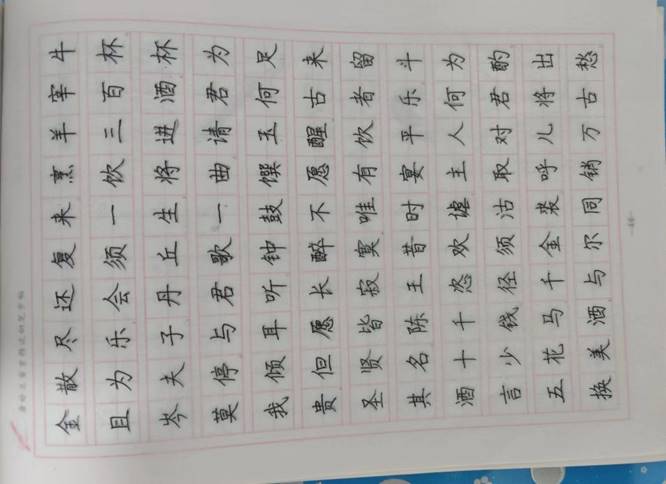 金散尽还复来烹羊宰牛
且为乐会须一饮三百杯
岑夫子丹丘生将进酒杯
莫停与君歌一曲请君为
我倾耳听钟鼓馔玉何足
贵但愿长醉不愿醒古来
圣贤皆寂寞唯有饮者留
其名陈王昔时宴平乐斗
酒十千恣欢谑主人何为
言少钱径须沽取对君酌
五花马千金裘呼儿将出
换美酒与尔同销万古愁